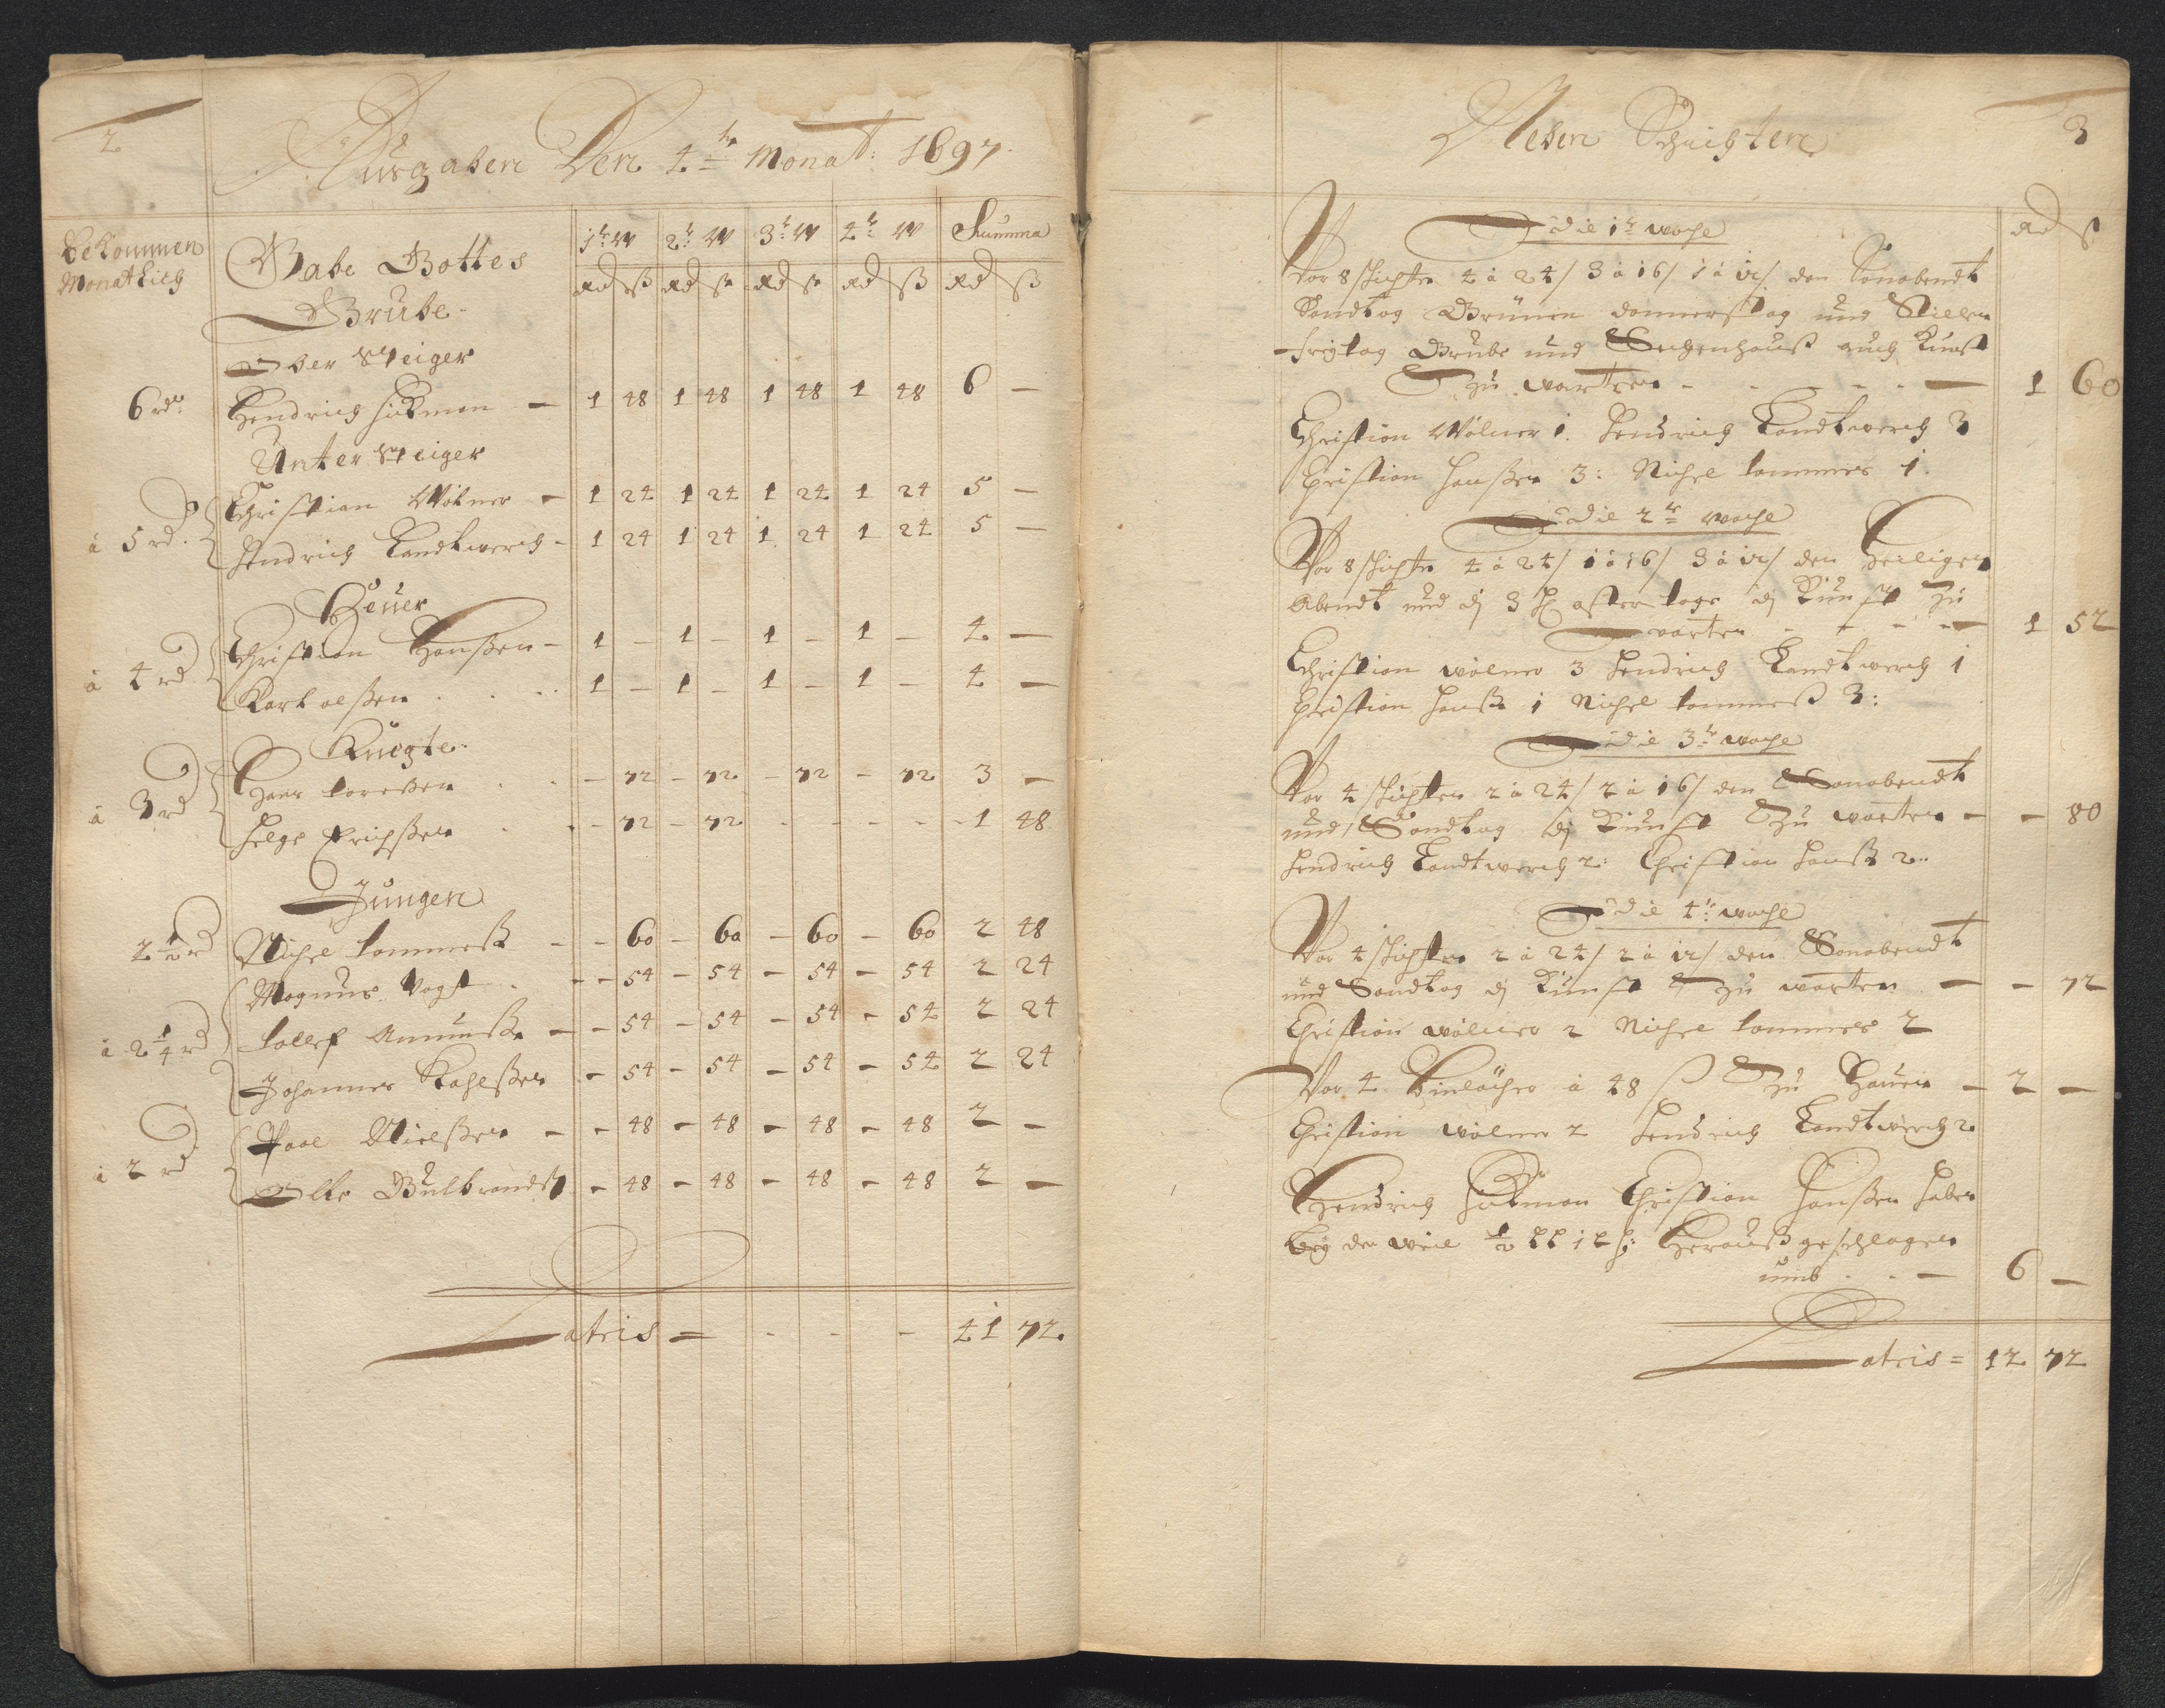 2
Ausgaben Den 4te Monat: 1697
Bekommen
Monatlich
1te W 2te W 3te W 4te W Summa
Gabe Gottes
Grube
Rd ß Rd ß Rd ß Rd ß Rd ß
Ober Steiger
6 rd Hendrich — 1 48 1 48 1 48 1 48 6 —
Unter Steiger
à 5 rd. Christian Wölner — 1 24 1 24 1 24 1 24 5 —
Hendrich Landtwerch - 1 24 1 24 1 24 1 24 5 —
Heuer
à 4 rd Christian Hanßen - 1 — 1 — 1 — 1 — 4 —
Karl olßen 1 — 1 — 1 — 1 — 4 —
Knechte
à 3 rd Hans - 72 - 72 - 72 - 72 3 —
Helge Erichßen - 72 - 72 - - - - 1 48
Jungen
2 1/2 rd Nichel - - 60 - 60 - 60 - 60 2 48
Magnus Vogt - - 54 - 54 - 54 - 54 2 24
à 2 1/4 rd - - 54 - 54 - 54 - 54 2 24
Johannes - 54 - 54 - 54 - 54 2 24
à 2 rd Poul Nielßen - - 48 - 48 - 48 - 48 2 -
Olle Gulbrandß - 48 - 48 - 48 - 48 2 —
Latris = - - - 41 72
Neben Schichten 3
Rd ß
Die 1te woche
Vor 8 schichten 4 à 24/ 3 à 16/ 1 à 12/ den Sonabendt
Sondtag Grünen donnerstag und Stillen
freytag Grube und Zechenhauß auch Kunst
Zu warten - - - - 1 60
Christian Wölner 1. Hendrich Landtwerch 3
Christian Hanßen 3: Nichel 1.
Die 2te woche
Vor 8 schichten 4 à 24/ 1 à 16/ 3 à 12/ den Heiligen
Abendt und d 3 oster tage d Kunst Zu
warten - - - 1 52
Christian wölner 3 Hendrich Landtwerch 1
Christian Hanß 1 Nichel 3:
Die 3te woche
Vor 4 schichten 2 à 24/ 2 à 16/ den Sonabendt
und Sondtag d Kunst Zu warten - - 80
Hendrich Landtwerch 2: Christian Hanß 2
Die 4te woche
Vor 4 schichten 2 à 24/ 2 à 12/ den Sonabendt
und Sondtag d Kunst Zu warten — - 72
Christian wölner 2 Nichel 2
Vor 4 à 48 ß Zu Hauen — 2 —
Christian wölner 2 Hendrich Landtwerch 2
Hendrich Christian Hanßen haben
bey der weil 1/2 herauß geschlagen
umb - - — 6 —
Latris = 12 72